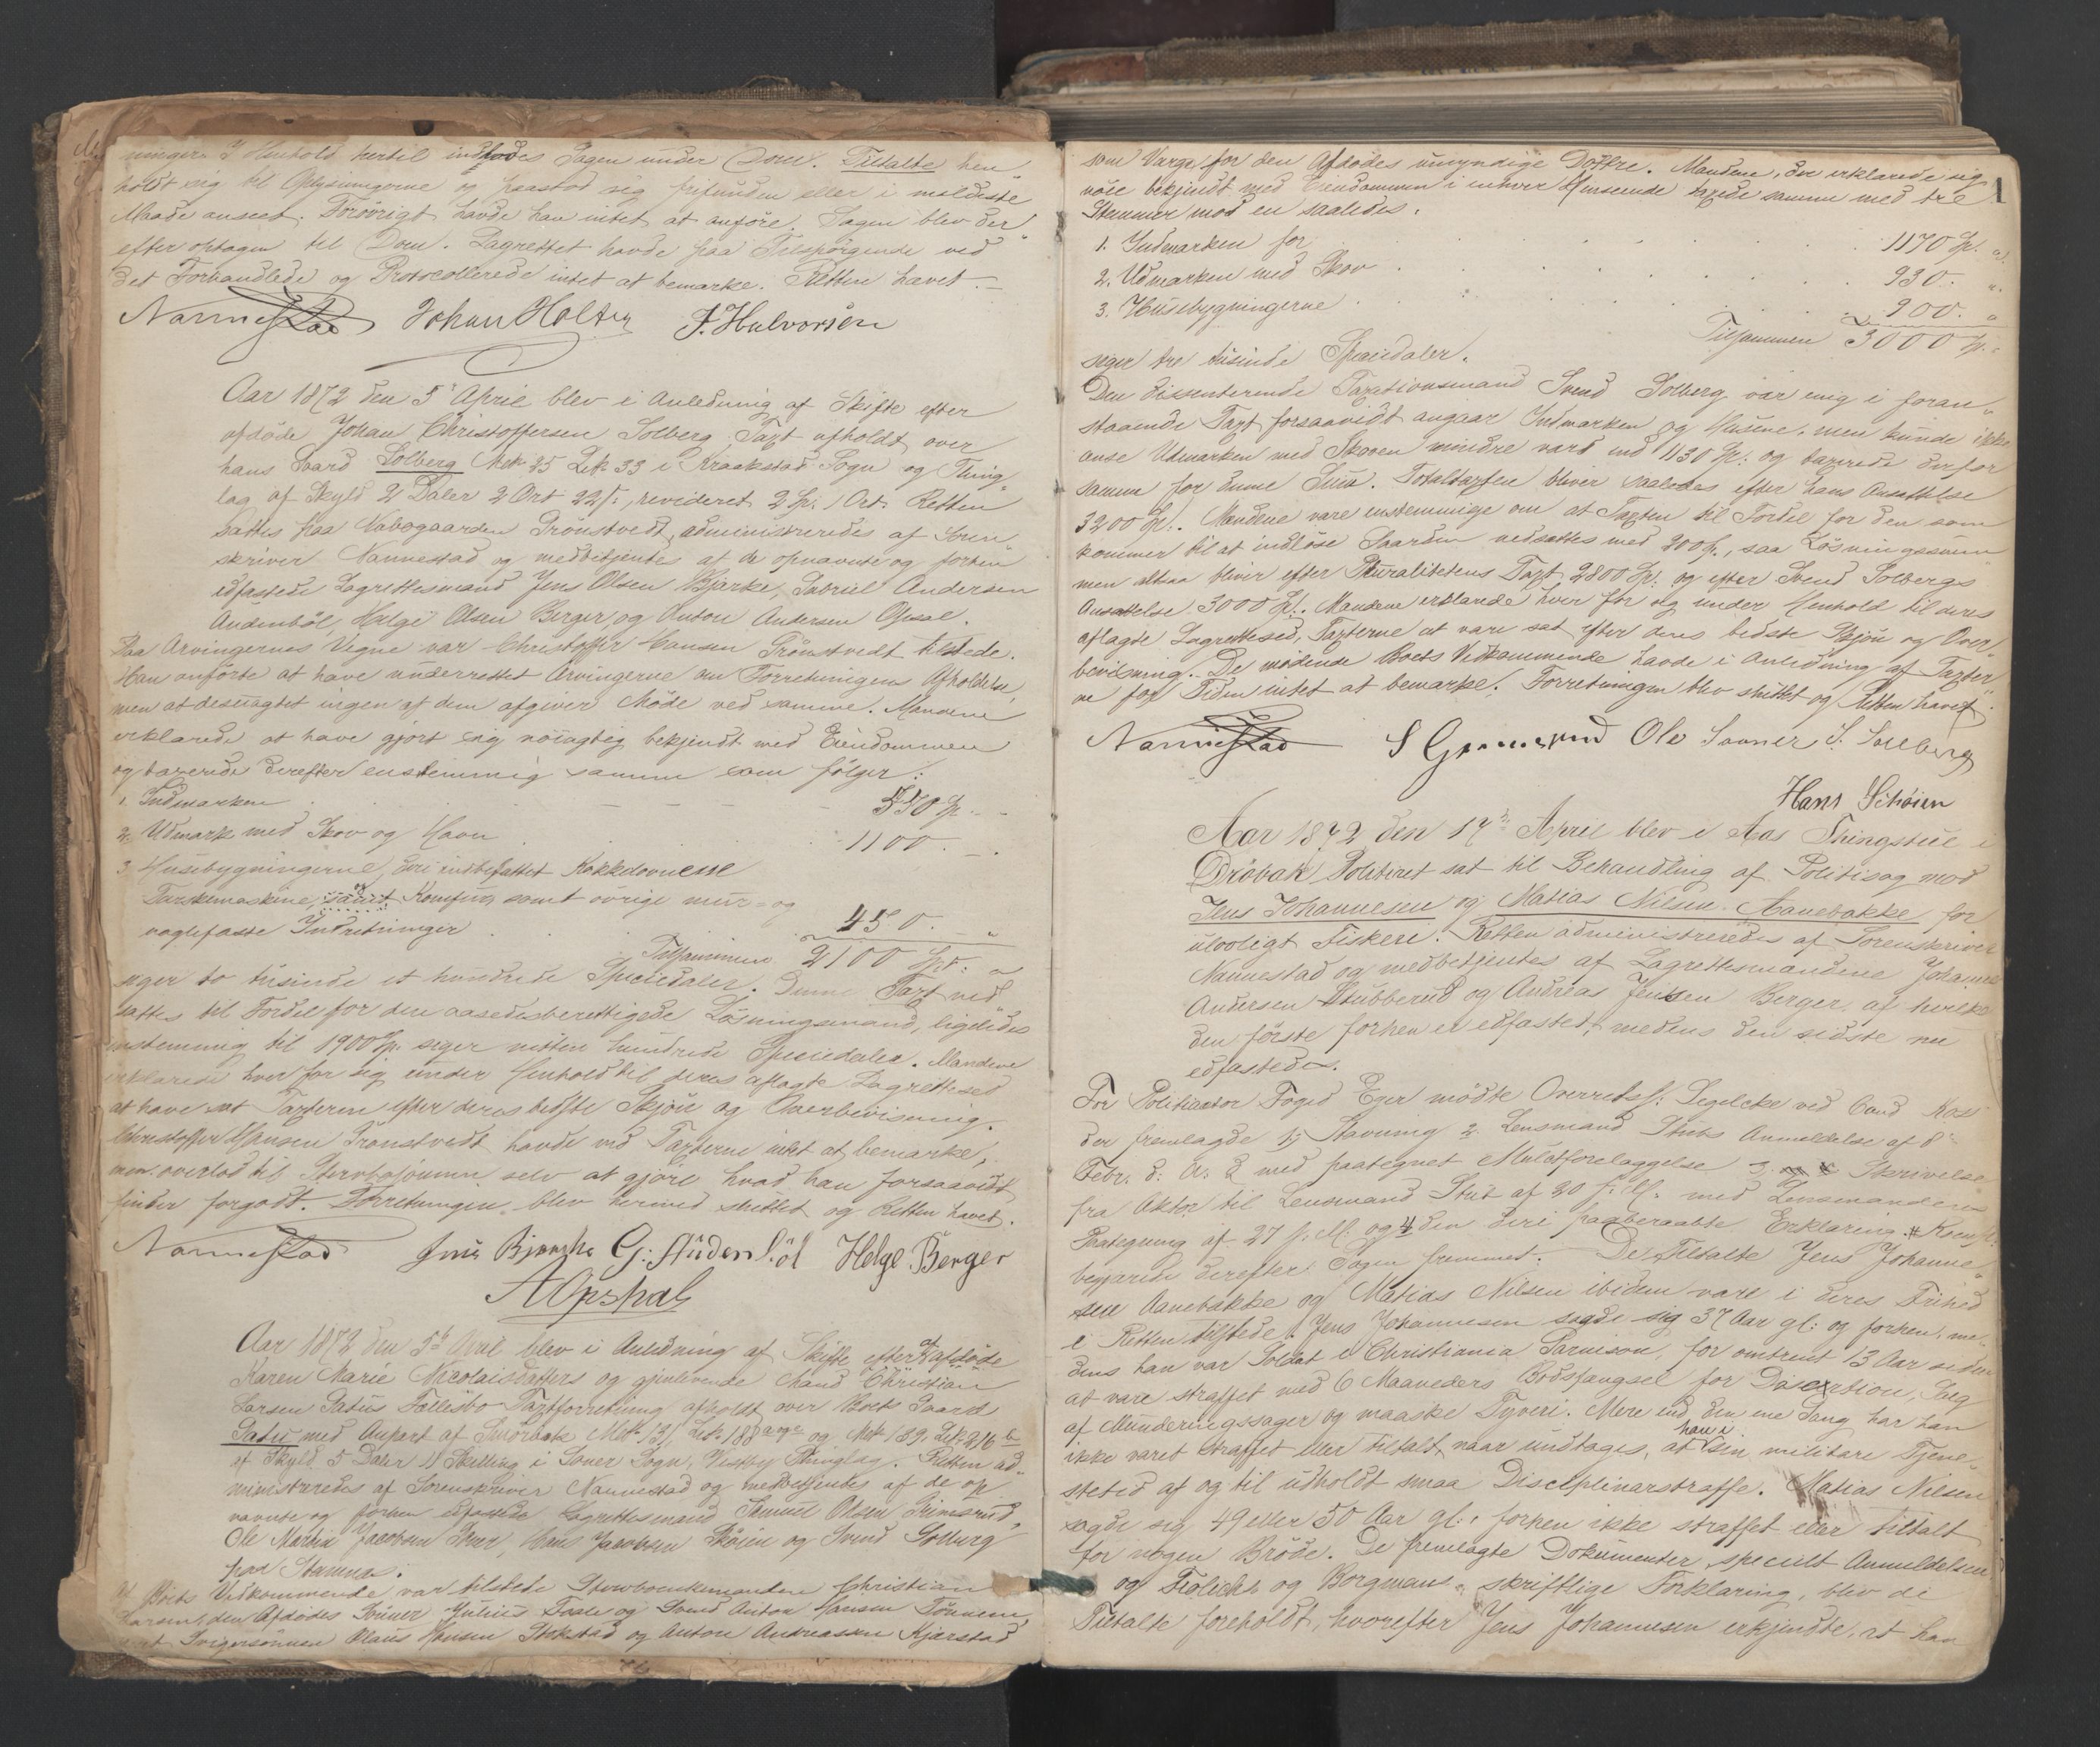 ninger. I Henhold hertil indlodes Sagen under Dom. Tiltalte hen-
holdt sig til Oplysningerne og paastod sig frifunden eller i mildeste
Maade anseet. Forövrigt havde han intet at anföre. Sagen blev der-
efter optagen til Dom. Lagrettet havde paa Tilspörgende ved
det Forhandlede og Protocollerede intet at bemærke. Retten hævet.
Nannestad Johan Holter J. Halvorsen
Aar 1872 den 5' April blev i Anledning af Skifte efter
afdöde Johan Christoffersen Solberg Taxt afholdt over
hans Gaard Solberg Mtr. 25 Lb. 33 i Kraakstad Sogn og Thing-
lag af Skyld 2 Daler 2 Ort 22 s:, revideret 2 Sp: 1 Ort. Retten
sattes paa Nabogaarden Grönstvedt, administreredes af Soren-
skriver Nannestad og medbetjentes af de opnævnte og forhen
edfæstede Lagrettesmænd Jens Olsen Bjerke, Gabriel Andersen
Audenböl, Helge Olsen Berger og Anton Andersen Opsal.
Paa Arvingernes Vegne var Christoffer Hansen Grönstvedt tilstede.
Han anförte at have underrettet Arvingerne om Forretningens Afholdelse,
men at desuagtet ingen af dem afgiver Möde ved samme. Mændene
erklærede at have gjort sig nöiagtig bekjendt med Eiendommen
og taxerede derefter enstemmig samme som fölger:
1. Indmarken 550 Sp. -
2. Udmark med Skov og Havn 1100. -
3 Husebygningerne, deri indbefattet Kakkelovnene
Tærskemaskine, og Komfur, samt övrige mur- og
naglefaste Indretninger 450. "
Tilsammen 2100 Spd. "
siger to tusinde et hundrede Speciedaler. Denne Taxt ned-
sattes til Fordel for den aasædesberettigede Lösningsmand, ligeledes
enstemmig til 1900 Sp. siger nitten hundrede Speciedaler. Mændene
erklærede hver for sig under Henhold til deres aflagte Lagrettesed
at have sat Taxterne efter deres bedste Skjön og Overbevisning.
Christoffer Hansen Grönstvedt havde ved Taxterne intet at bemærke,
men overlod til Stervbosönnen selv at gjöre hvad han forsaavidt
finder forgodt. Forretningen blev hermed sluttet og Retten hævet.
Nannestad Jens Bjerche G: Audenböl Helge Berger
A Opshal
Aar 1872 den 5te April blev i Anledning af Skifte efter afdöde
Karen Marie Nicolaisdatters og gjenlevende Mand Christian
Larsen Gatus Fællesbo Taxtforretning afholdt over Boets Gaard
Gatu med Anpart af Smörbæk Mtr. 131, Lb. 188 og Mtr 189, Lb. 216 b
af Skyld 5 Daler 11 Skilling i Soner Sogn, Vestby Thinglag. Retten ad-
ministreredes af Sorenskriver Nannestad og medbetjentes af de op-
nævnte og forhen edfæstede Lagrettesmænd Samuel Olsen Grimsrud,
Ole Martin Jacobsen Soner, Hans Jacobsen Sköien og Svend Solberg
paa Stamnes.
Af Boets Vedkommende var tilstede Stervboenkemanden Christian
Larsen, den Afdödes Sönner Julius Fosle og Svend Anton Hansen Tönnem,
samt Svigersönnen Olaus Hansen Stokstad og Anton Andreassen Kjærstad
som Værge for den Afdödes umyndige Döttre. Mændene, der erklærede sig
nöie bekjendt med Eiendommen i enhver Henseende taxerede samme med tre
Stemmer mod en saaledes.
1. Indmarken for 1170 Sp. "
2. Udmarken med Skov 930. "
3. Husebygningerne 900. "
Tilsammen 3000 Sp. "
siger tre tusinde Speciedaler.
Den dissenterende Taxationsmand Svend Solberg var enig i foran-
staaende Taxt forsaavidt angaar Indmarken og Husene, men kunde ikke
anse Udmarken med Skoven mindre værd end 1130 Sp: og taxerede derfor
samme for denne Sum. Totaltaxten bliver saaledes efter hans Ansættelse
3200 Sp. Mændene vare enstemmige om at Taxten til Fordel for den som
kommer til at indlöse Gaarden nedsattes med 200 Sp., saa Lösningssum-
men altsaa bliver efter Pluralitetens Taxt 2800 Sp: og efter Svend Solbergs
Ansættelse 3000 Sp. Mændene erklærede hver for sig under Henhold til deres
aflagte Lagrettesed, Taxterne at være sat efter deres bedste Skjön og Over-
bevisning. De mödende Boets Vedkommende havde i Anledning af Taxter-
ne for Tiden intet at bemærke. Forretningen blev sluttet og Retten hævet.
Nannestad S Grimsrud Ole Sooner S. Sollberg
Hans Schöien
Aar 1872 den 17de April blev i Aas Thingstue i
Dröbak Politiret sat til Behandling af Politisag mod
Jens Johannesen og Matias Nilsen Aanebakke for
ulovligt Fiskeri. Retten administreredes af Sorenskriver
Nannestad og medbetjentes af Lagrettesmændene Johannes
Andersen Stubberud og Andreas Jensen Berger, af hvilke
den förste forhen er edfæstet, medens den sidste nu
edfæstedes.
For Politiaktor Foged Eger mödte Overretss: Segelcke ved Cand Moss
der fremlagde 1, Stævning 2. Lensmand Stubs Anmeldelse af 8de
Febr. d: A: med paategnet Mulctforelæggelse 3. Skrivelse
fra Aktor til Lensmand Stub af 20 f: M: med Lensmandens
Paategning af 27 f. M. og 4 den deri paaberaabte Erklæring. # Komp.
begjærede derefter Sagen fremmet. De Tiltalte Jens Johanne-
sen Aanebakke og Matias Nilsen ibidem vare i deres Frihed
i Retten tilstede. Jens Johannesen sagde sig 37 Aar gl: og forhen, me-
dens han var Soldat i Christiania Garnison, for omtrent 13 Aar siden
at være straffet med 6 Maaneders Bodsfængsel for Desertion, Salg
af Munderingssager og maaske Tyveri. Mere end den ene Gang har han
ikke været straffet eller tiltalt, naar undtages, at han i sin militære Tjene-
stetid af og til udholdt smaa Disciplinærstraffe. Matias Nilsen
sagde sig 49 eller 50 Aar gl:, forhen ikke straffet eller tiltalt
for nogen Bröde. De fremlagte Dokumenter, specielt Anmeldelsen
og Frölichs og Borgmans skriftlige Forklaring, blev de
Tiltalte foreholdt, hvorefter Jens Johannesen erkjendte, at han